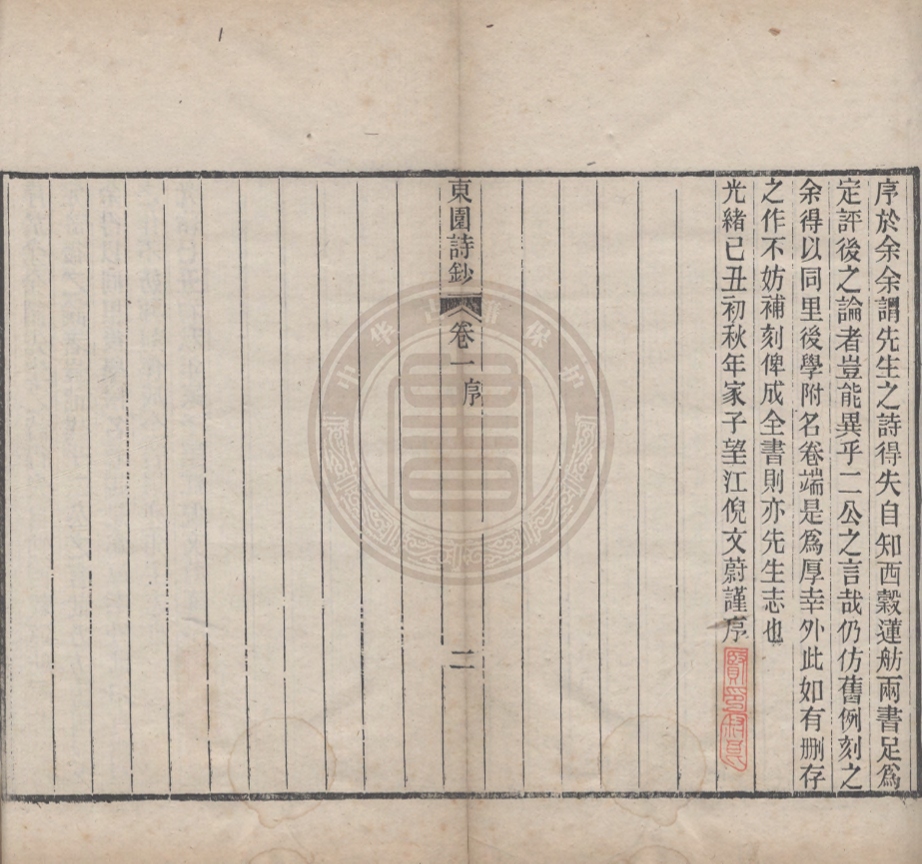 序於余余謂先生之詩得失自知西穀蓮舫兩書足爲
定評後之論者豈能異乎二公之言哉仍仿舊例刻之
余得以同里後學附名卷端是爲厚幸外此如有删存
之作不妨補刻俾成全書則亦先生志也
光緒己丑初秋年家子望江倪文蔚謹序
東園詩鈔
卷一序
二